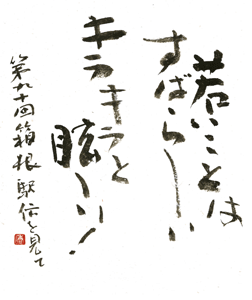 若いことは
すばらしい
キラキラと
眩しい!
第九十回箱根駅伝を見て